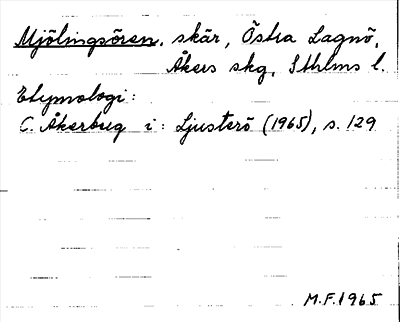 Mjölingsören, skär, Östra Lagnö,
Åkers skg, Sthlms l.
Etymologi:
C. Åkerberg i: Ljusterö (1965), s. 129
M.F. 1965